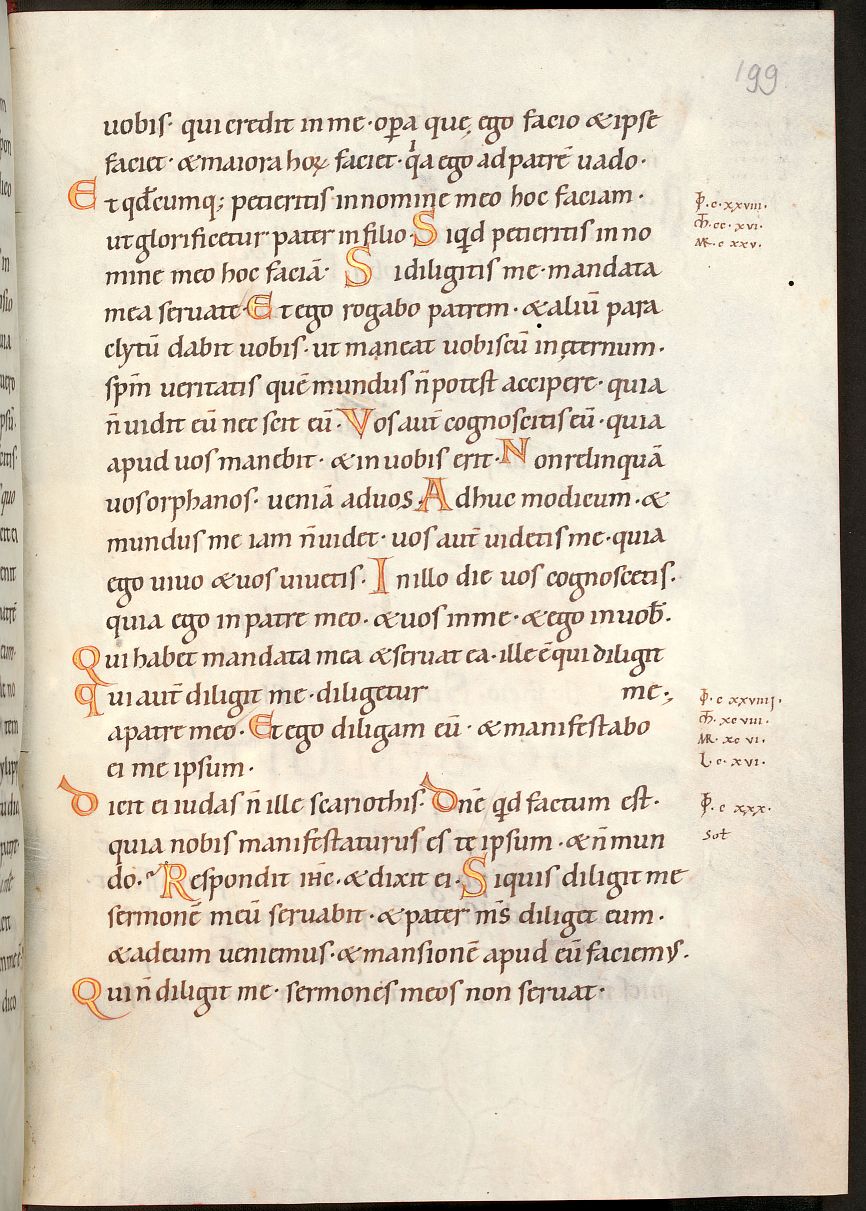 199
uobis· qui credit in me· op̄a que, ego facio & ipse
faciet· & maiora hoꝝ faciet· q̇a ego ad patrē uado·
Et qd̄cumq; petieritis in nomine meo hoc faciam·
ut glorificetur pater in filio· Siqid petieritis in no
mine meo hoc faciā· Si diligitis me· mandata
mea seruate· Et ego rogabo patrem· & aliū para
clytū dabit uobis· ut maneat uobiscū in ęternum·
spm̄ ueritatis quē mundus n̄ potest accipere· quia
n̄ uidit eū nec scit eū· Vos aut̄ cognoscitis eū· quia
apud uos manebit· & in uobis erit· Non relinquā
uos orphanos· ueniā ad uos· Adhuc modicum· &
mundus me iam n̄ uidet· uos aut̄ uidetis me· quia
ego uiuo & uos uiuetis· In illo die uos cognoscetis·
quia ego in patre meo· & uos in me· & ego in uob̄·
Qui habet mandata mea & seruat ea· ille ē qui diligit
qui aut̄ diligit me· diligetur me·,
a patre meo· Et ego diligam eū· & manifestabo
ei me ipsum·
Dicit ei iudas n̄ ille scariothis· Dn̄e qd factum est·
quia nobis manifestaturus es te ipsum· & n̄ mun
do· Respondit ih̄c· & dixit ei· Siquis diligit me
sermonē meū seruabit· & pater m̄s diliget eum·
& ad eum ueniemus· & mansionē apud eū faciemus·
Qui n̄ diligit me· sermones meos non seruat·
c·xxviii·
cc·xvi·
MR·c xxv·
c xxviiii·
xcviii·
MR· xc vi·
L·c·xvi·
c xxx·
Sol